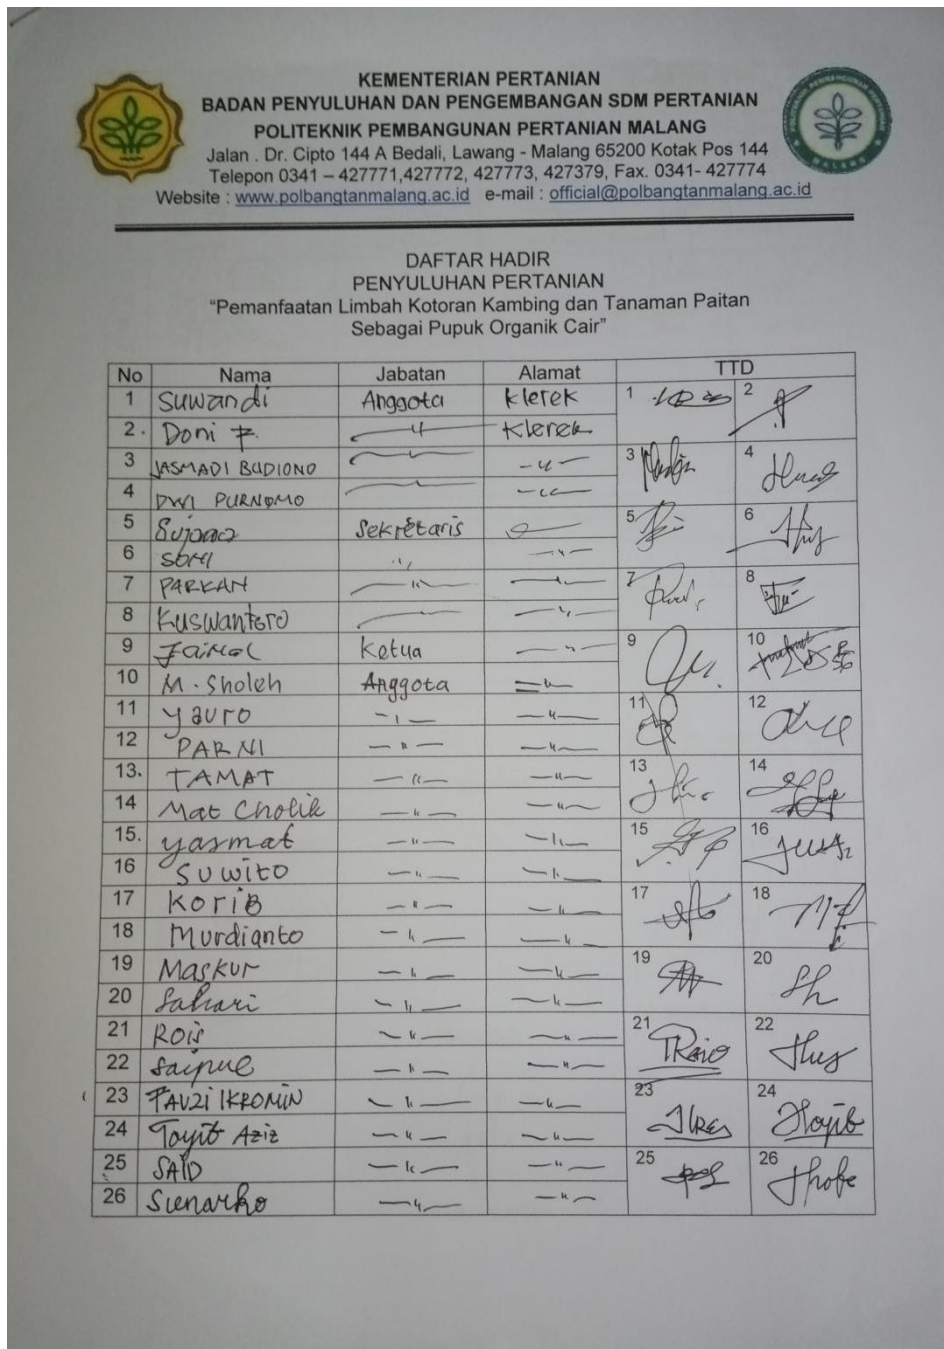 KEMENTERIAN PERTANIAN
BADAN PENYULUHAN DAN PENGEMBANGAN SDM PERTANIAN
POLITEKNIK PEMBANGUNAN PERTANIAN MALANG
Jalan . Dr. Cipto 144 A Bedali, Lawang - Malang 65200 Kotak Pos 144
Telepon 0341 – 427771,427772, 427773, 427379, Fax. 0341- 427774
Website : www.polbangtanmalang.ac.id e-mail : official@polbangtanmalang.ac.id
DAFTAR HADIR
PENYULUHAN PERTANIAN
“Pemanfaatan Limbah Kotoran Kambing dan Tanaman Paitan
Sebagai Pupuk Organik Cair”
No Nama Jabatan Alamat TTD
1 Suwandi Anggota Klerek 1 2
2. Doni F. 〃 Klerek
3 JASMADI BUDIONO 〃 〃 3 4
4 DWI PURNOMO 〃 〃
5 Sekretaris 〃 5 6
6 〃 〃
7 PARKAN 〃 〃 7 8
8 Kuswantoro 〃 〃
9 Ketua 〃 9 10
10 M. Sholeh Anggota 〃
11 Yauro 〃 〃 11 12
12 PARNI 〃 〃
13. TAMAT 〃 〃 13 14
14 Mat Cholik 〃 〃
15. Yasmat 〃 〃 15 16
16 SUWITO 〃 〃
17 KORIB 〃 〃 17 18
18 Murdianto 〃 〃
19 MASKUR 〃 〃 19 20
20 Sahari 〃 〃
21 ROIS 〃 〃 21 22
22 Saipul 〃 〃
23 FAUZI IKROMIN 〃 〃 23 24
24 Toyib Aziz 〃 〃
25 SAID 〃 〃 25 26
26 Sunarko 〃 〃